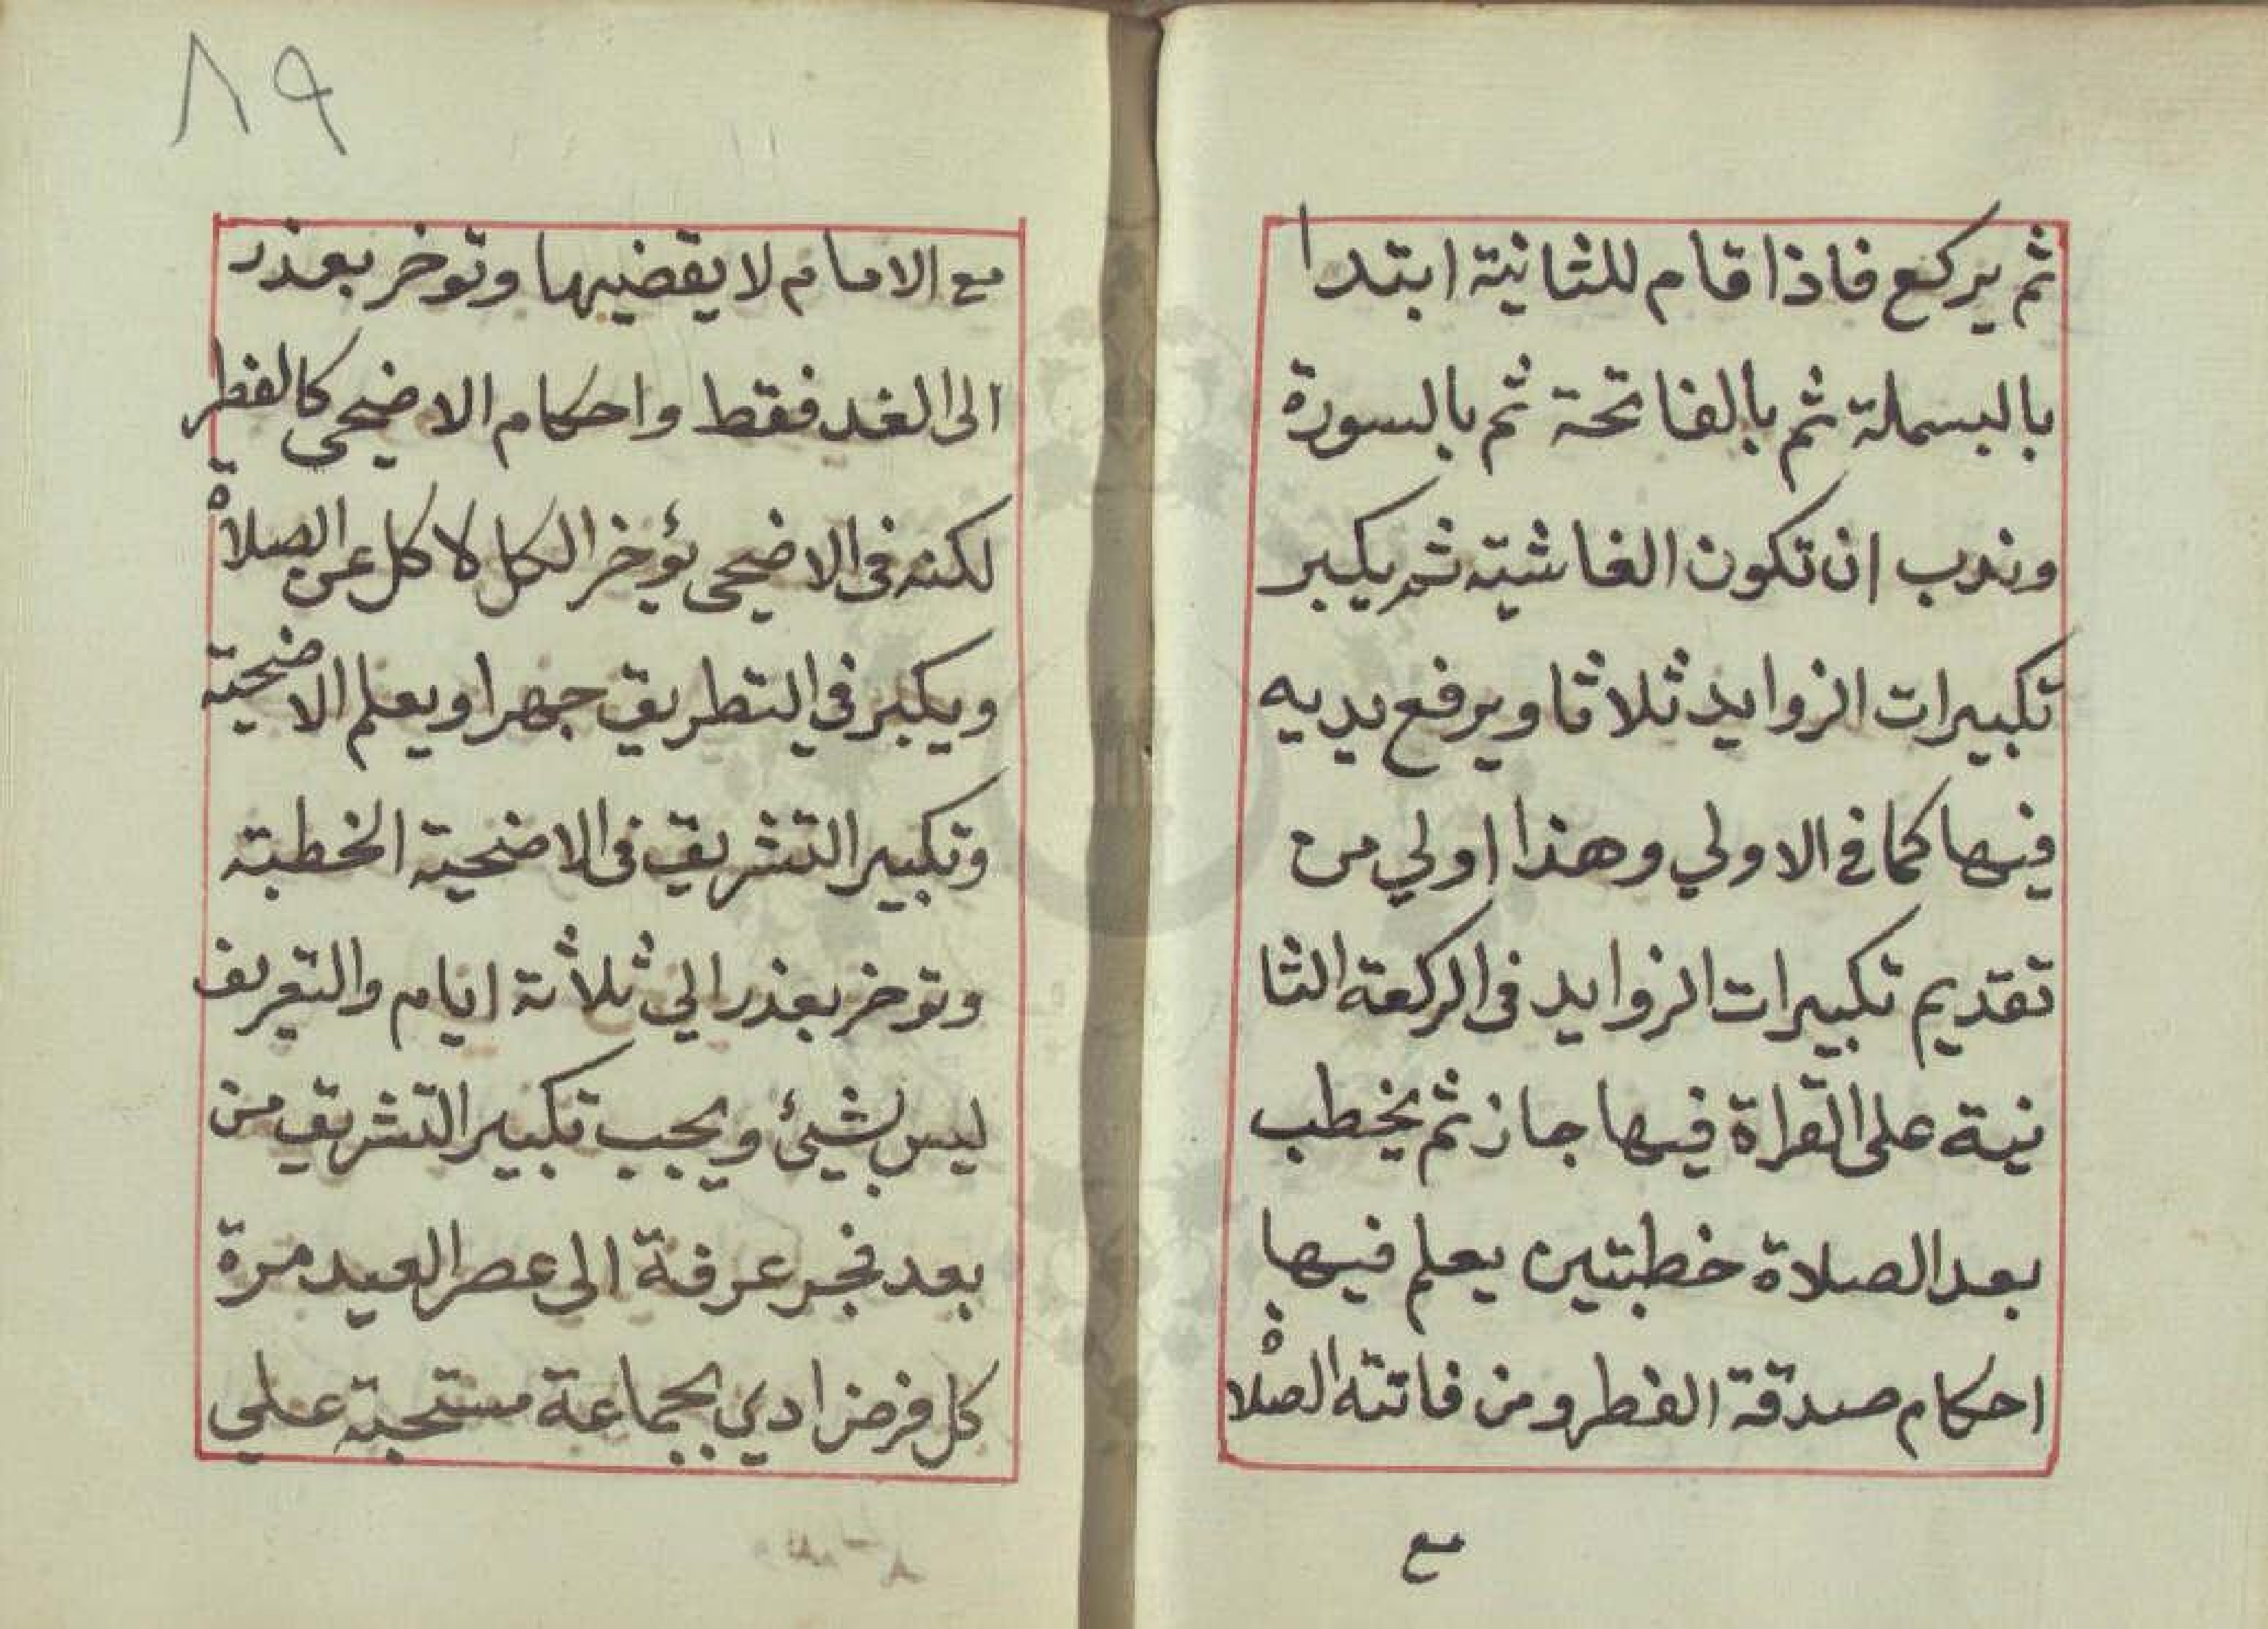 ثم يركع فاذا قام للثانية ابتدا
بالبسملة ثم بالفاتحة ثم بالسورة
وندب ان تكون الغاشية ثم يكبر
تكبيرات الزوايد ثلاثا ويرفع يديه
فيها كما في الاولي وهذا اولي من
تقديم تكبيرات الزوايد في الركعة الثا
نية على القراة فيها جاز ثم يخطب
بعد الصلاة خطبتين يعلم فيها
احكام صدقة الفطر ومن فاتته الصلاة
مع
٨٩
مع الامام لا يقضيها وتوخر بعذر
الى الغد فقط واحكام الاضحى كالفطر
لكنه فى الاضحى يؤخر الكل لاكل عن الصلاة
ويكبر في التطريق جهرا ويعلم الاضحية
وتكبير التشريق فى الاضحية الخطبة
وتوخر بعذر الي ثلاثة ايام والتعريف
ليس بشيئ ويجب تكبير التشريق من
بعد فجر عرفة الى عصر العيد مرة
كل فرض ادي بجماعة مستحبة علي